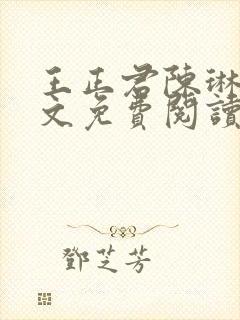 王正君陳琳
文免費閱讀
鄧芝芳